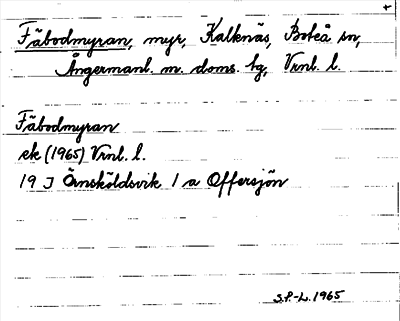 +
Fäbodmyran, myr, Kalknäs, Boteå sn,
Ångermanl. m. doms. tg, Vrnl. l.
Fäbodmyran
ek (1965) Vrnl. l.
19 J Örnsköldsvik 1 a Offersjön
S.P.-L. 1965